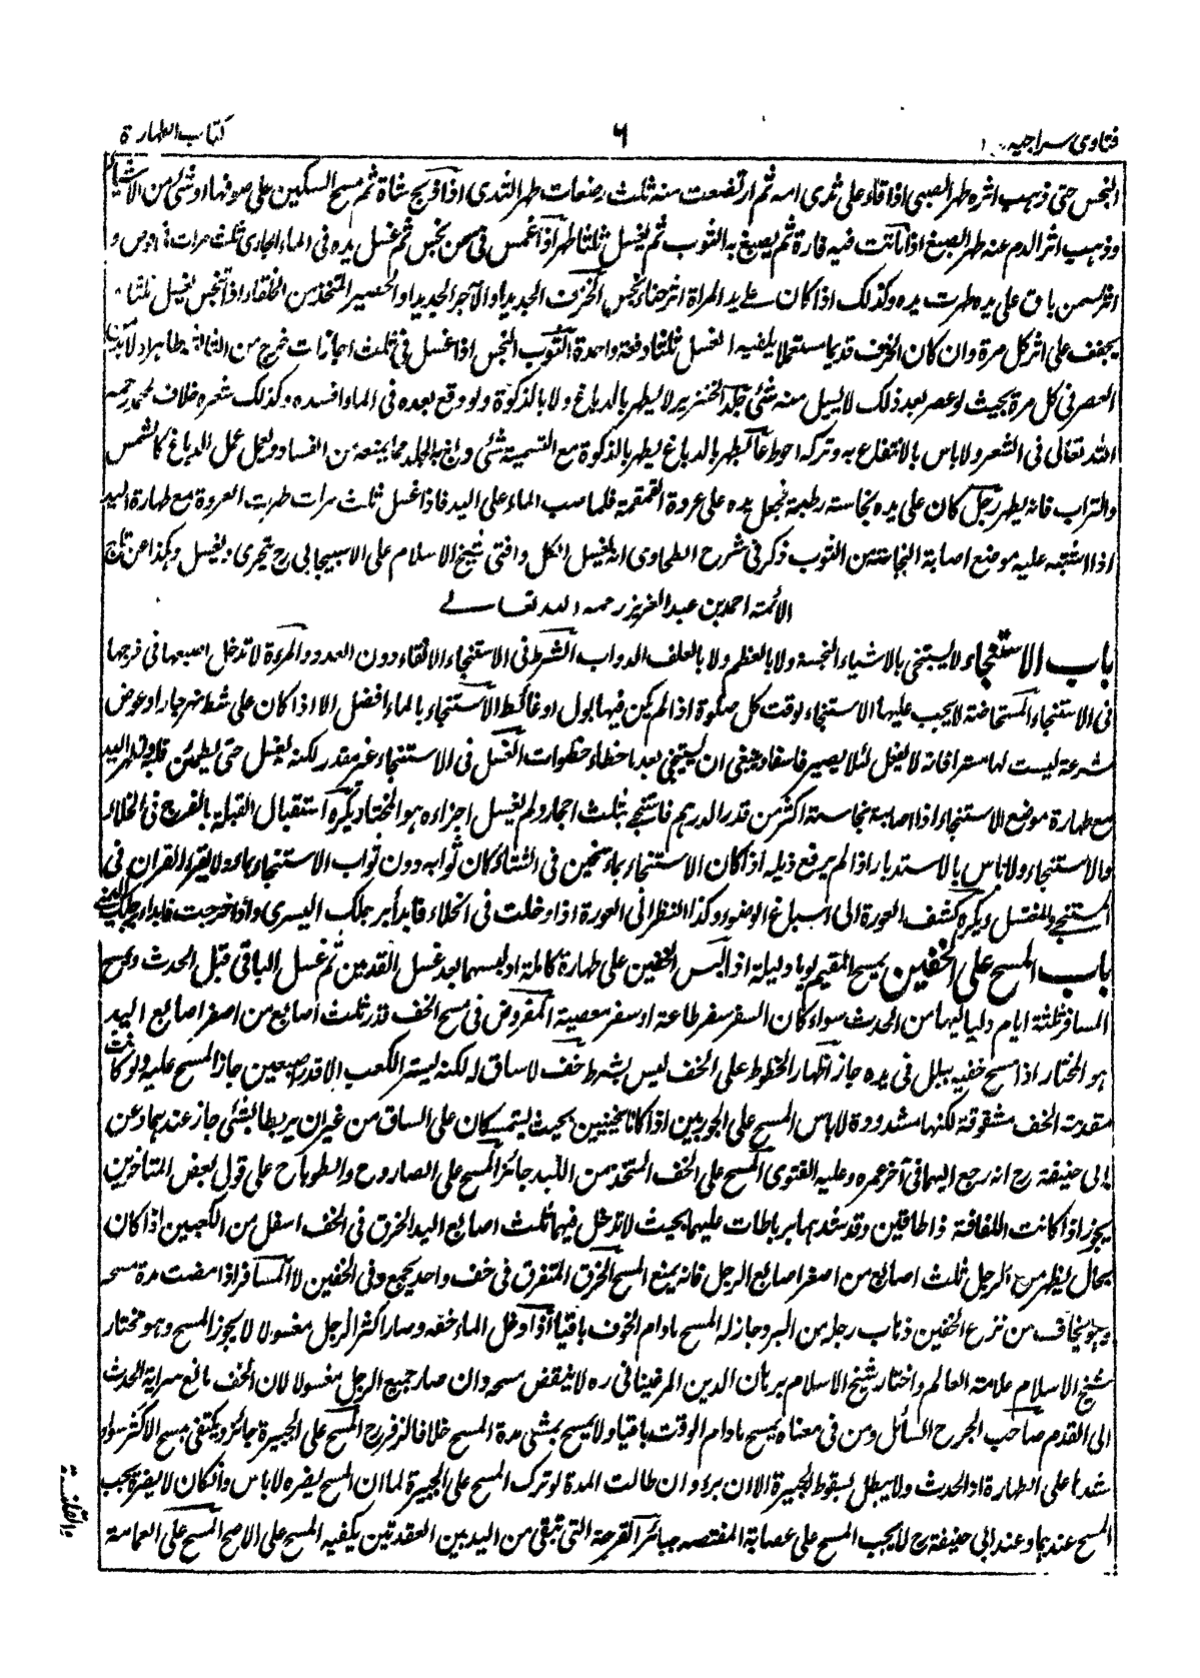 فتاوى سراجيه
٦
كتاب الطهارة
النجس حتى ذهب اثره طهر الصبى اذا قاء على ثدى امه ثم ارتضعت منه ثلث رضعات طهر الثدى اذا ذبح شاة ثم مسح السكين على صوفها او شئ من الاشياء
وذهب اثر الدم عنه طهر الصبغ اذا ماتت فيه فارة ثم يصبغ به الثوب ثم يغسل ثلثا طهر اذا غمس فى سمن نجس ثم غسل يده فى الماء الجارى ثلث مرات و
اثر السمن باق على يده طهرت يده وكذلك اذا كان على يد المراة اثر حناء نجس الخزف الجديد او الآجر الجديد او الحصير المتخذ من الحلفاء اذا تنجس يغسل ثلثا
يجفف على اثر كل مرة وان كان الخزف قديما مستعملا يكفيه الغسل ثلثا دفعة واحدة الثوب النجس اذا غسل فى ثلث اجانات خرج من الثالثة طاهرا ولا بد من
العصر فى كل مرة بحيث لو عصر بعد ذلك لا يسيل منه شئ جلد الخنزير لا يطهر بالدباغ ولا بالذكوة ولو وقع بعده فى الماء افسده وكذلك شعره خلاف محمد رحمه
الله تعالى فى الشعر ولا باس بالانتفاع به وتركه احوط ما يطهر بالدباغ يطهر بالذكوة مع التسمية شئ دبغ به الجلد مما يمنعه من الفساد ويعمل عمل الدباغ كالشمس
والتراب فانه يطهر رجل كان على يده نجاسة رطبة فجعل يده على عروة القمقمة فلما صب الماء على اليد فاذا غسل ثلث مرات طهرت العروة مع طهارة اليد
اذا اشتبه عليه موضع اصابة النجاسة من الثوب ذكر فى شرح الطحاوى انه يغسل الكل وافتى شيخ الاسلام على الاسبيجابى رح يتحرى ويغسل وكذا عن تاج
الائمة احمد بن عبد العزيز رحمه الله تعالى
باب الاستنجاء لا يستنجى بالاشياء النجسة ولا بالعظم ولا بالعلف الدواب الشرط فى الاستنجاء الانقاء دون العدد والمرءة لا تدخل اصبعها فى فرجها
فى الاستنجاء المستحاضة لا يجب عليها الاستنجاء لوقت كل صلوة اذا لم يكن فيها بول او غائط الاستنجاء بالماء افضل الا اذا كان على شط نهر جار او حوض
شرعة ليست لها ستر افانه لا يفعل لئلا يصير فاسقا وينبغى ان يستنجى بعد ما خطاء خطوات الغسل فى الاستنجاء غير مقدر لكنه يغسل حتى يطمئن قلبه وتطهر اليد
مع طهارة موضع الاستنجاء اذا اصابته نجاسة اكثر من قدر الدرهم فاستنجى بثلث احجار ولم يغسل اجزاءه هو المختار يكره استقبال القبلة بالفرج فى الخلاء
والاستنجاء ولا باس بالاستدبار اذا لم يرفع ذيله اذا كان الاستنجاء بماء سخين فى الشتاء كان ثوابه دون ثواب الاستنجاء بماء ولا يقرء القران فى
المستنجى والمغتسل ويكره كشف العورة الى اسباغ الوضوء وكذا النظر الى العورة اذا دخلت فى الخلاء فابدأ برجلك اليسرى واذا خرجت فابدا برجلك اليمنى
باب المسح على الخفين يمسح المقيم يوما وليلة اذا لبس الخفين على طهارة كاملة او لبسهما بعد غسل القدمين ثم غسل الباقى قبل الحدث ويمسح
المسافر ثلثة ايام ولياليها من الحدث سواء كان السفر سفر طاعة او سفر معصية المفروض فى مسح الخف قدر ثلث اصابع من اصغر اصابع اليد
هو المختار اذا مسح خفيه ببلل فى يده جاز اظهار الخطوط على الخف ليس بشرط خف لا ساق له لكنه يستر الكعب الا قدر اصبعين جاز المسح عليه ولو كانت
مقدمة الخف مشقوقة لكنها مشدودة لا باس المسح على الجوربين اذا كانا ثخينين بحيث يتمسكان على الساق من غير ان يربطا بشئ جاز عندهما وعن
ابى حنيفة رح انه رجع اليهما فى آخر عمره وعليه الفتوى المسح على الخف المتخذ من اللبد جائز المسح على الصاروح والطوماح على قول بعض المتاخرين
يجوز اذا كانت اللفافة ذا طاقين وقد شدهما برباطات عليهما بحيث لا تدخل فيهما ثلث اصابع اليد الخرق فى الخف اسفل من الكعبين اذا كان
بحال يظهر من الرجل ثلث اصابع من اصغر اصابع الرجل فانه يمنع المسح الخرق المتفرق فى خف واحد يجمع وفى الخفين لا المسافر اذا مضت مدة مسحه
وهو يخاف من نزع الخفين ذهاب رجله من البرد جاز له المسح ما دام الخوف باقيا اذا دخل الماء خفه وصار اكثر الرجل مغسولا لا يجوز المسح وهو مختار
شيخ الاسلام علامة العالم واختار شيخ الاسلام برهان الدين المرغينانى ره لا ينتقض مسحه وان صار جميع الرجل مغسولا لان الخف مانع سراية الحدث
الى القدم صاحب الجرح السائل ومن فى معناه يمسح ما دام الوقت باقيا ولا يمسح بمشى مدة المسح خلافا لزفر رح المسح على الجبيرة جائز ويكتفى بمسح الاكثر سواء
شدها على الطهارة او الحدث ولا يبطل بسقوط الجبيرة الا ان برء وان طالت المدة لو ترك المسح على الجبيرة لما ان المسح يضره لا باس وان كان لا يضره يجب
المسح عندهما وعند ابى حنيفة رح لا يجب المسح على عصابة المفتصد جائز القرحة التى تبقى من اليد بين العقدتين يكفيه المسح على الاصح المسح على العمامة
والقلنسوة